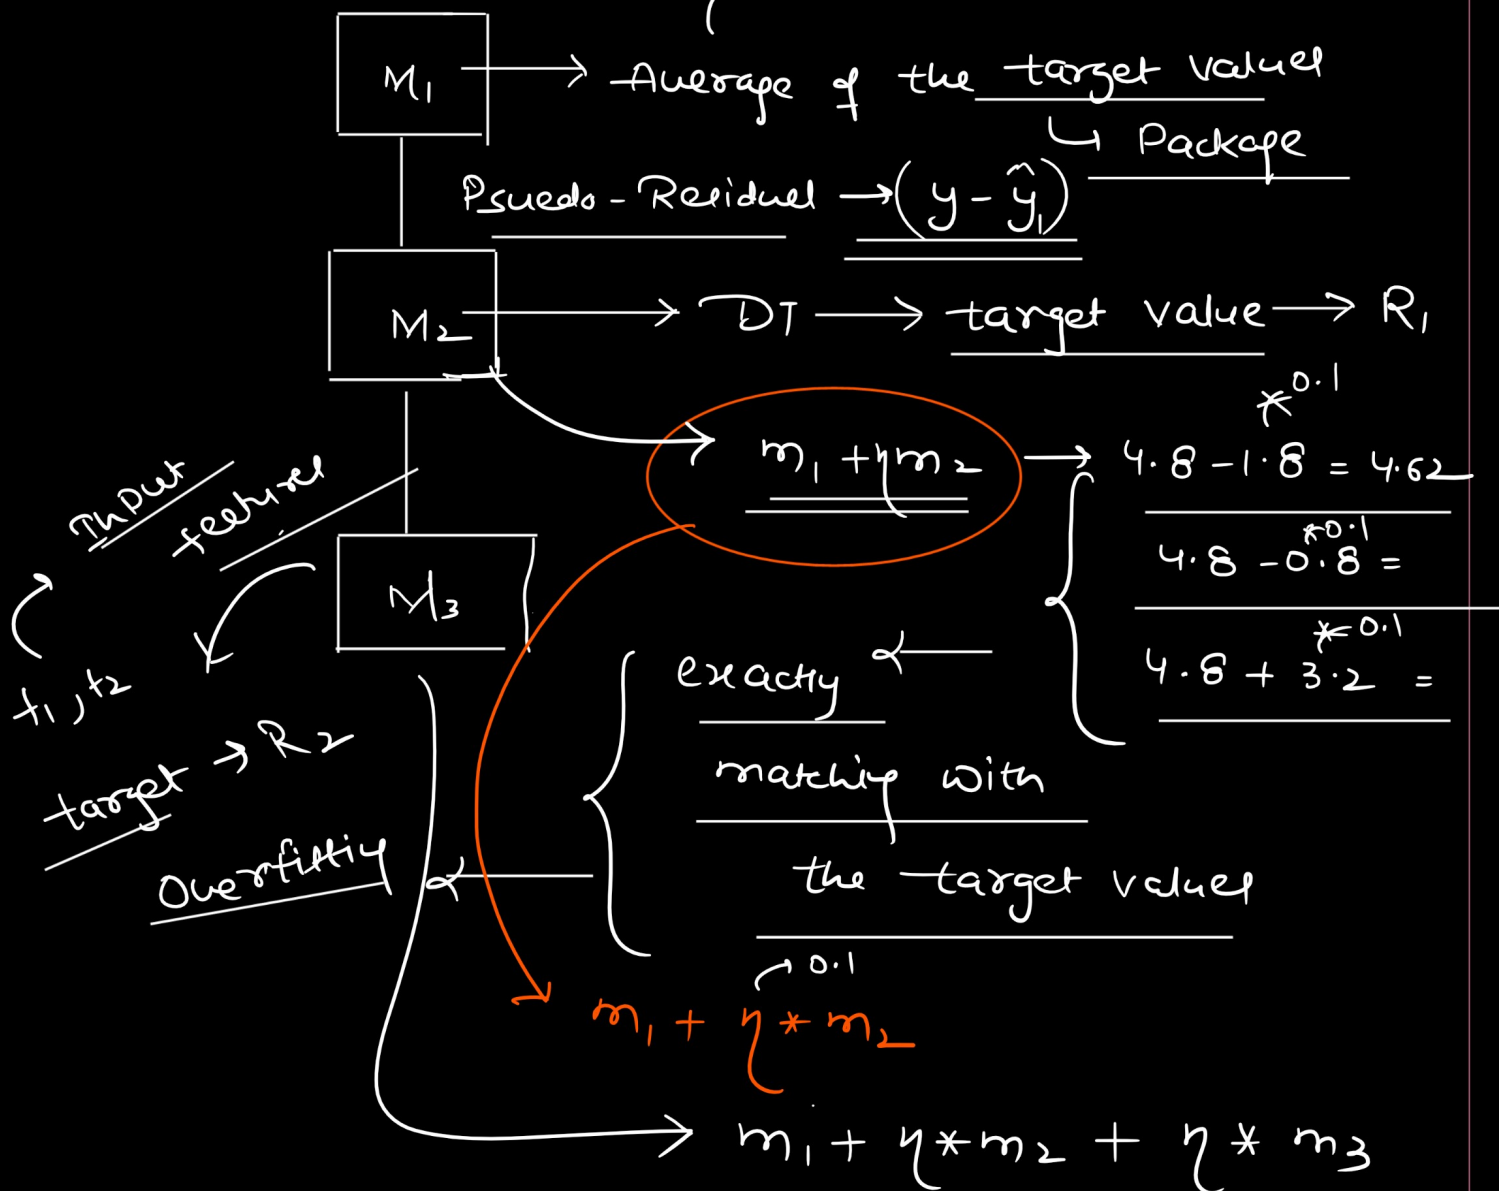 M1 → Average of the target values
↳ Package
Psuedo-Residual → (y - ŷ1)
M2 → DT → target value → R1
*0.1
m1 + ηm2 → 4.8 - 1.8 = 4.62
*0.1
4.8 - 0.8 =
*0.1
4.8 + 3.2 =
Input
features
M3
f1, f2
target → R2
exactly
matching with
the target values
Overfitting
0.1
m1 + η * m2
m1 + η * m2 + η * m3